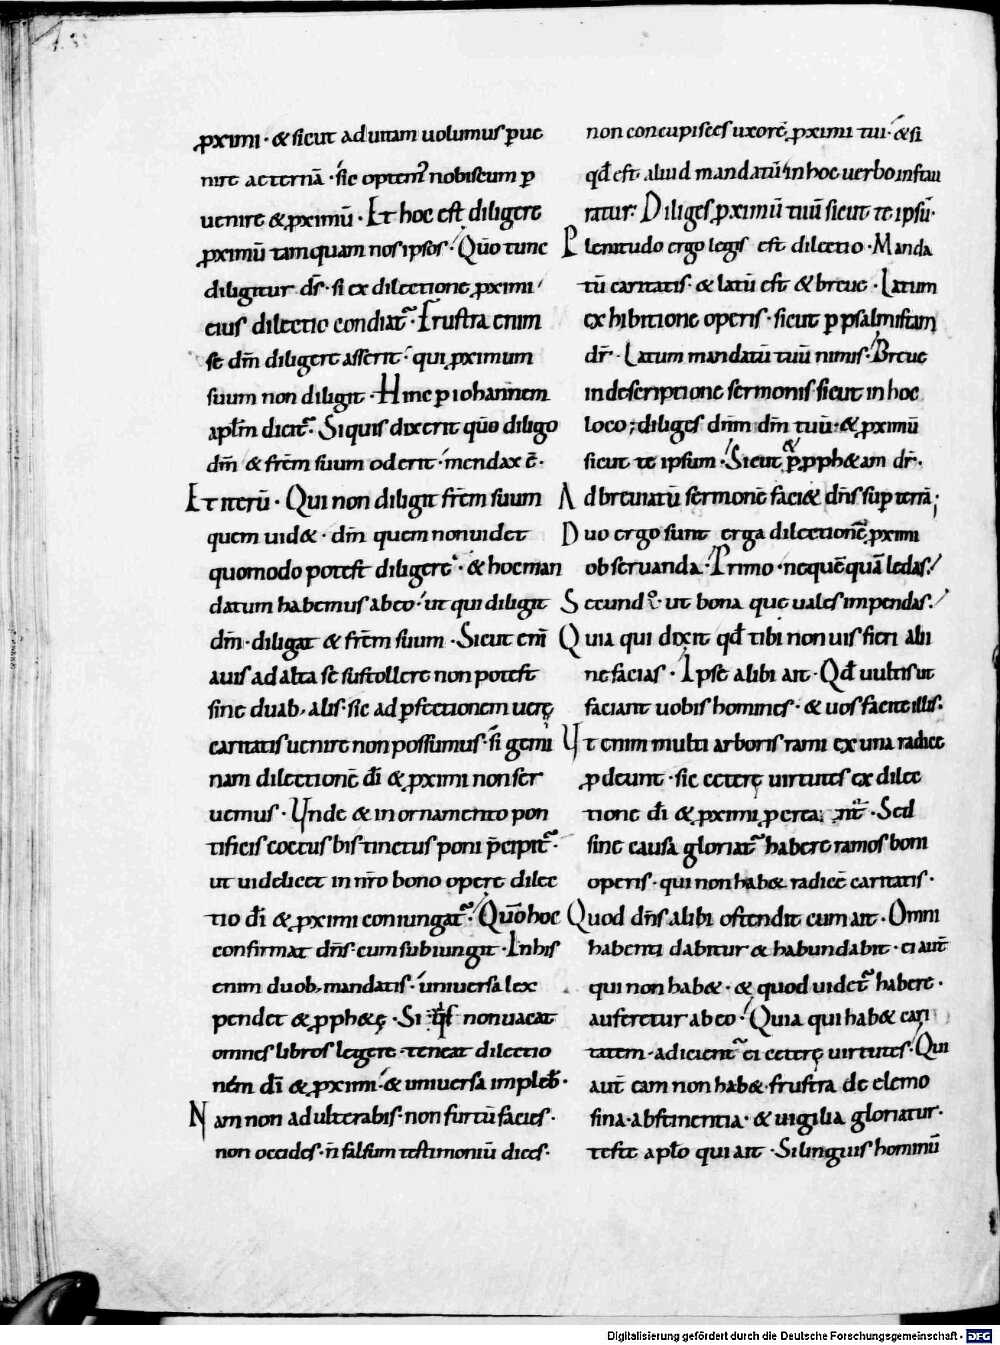 ꝓximi · & sicut ad uitam uolumus ꝑue
nire aeternā · sic optem᷒ nobiscum ꝑ
uenire & ꝓximū · Et hoc est diligere
ꝓximū tamquam nos ipsos · Quō tunc
diligitur d̄s · si ex dilectione ꝓximi
eius dilectio condiat᷑ · Frustra enim
se dm̄ diligere asserit · qui ꝓximum
suum non diligit · Hinc ꝑ iohannem
aplm̄ dicit᷑ · Si quis dixerit quō diligo
dm̄ & frēm suum oderit · mendax ē ·
Et iterū · Qui non diligit frēm suum
quem uid& · dm̄ quem non uidet
quomodo potest diligere · & hoc man
datum habemus ab eo · ut qui diligit
dm̄ · diligat & frēm suum · Sicut enī
auis ad alta se sustollere non potest
sine duab; alis · sic ad ꝑfectionem uerę
caritatis uenire non possumus · si gemi
nam dilectionē dī & ꝓximi non ser
uemus · Unde & in ornamento pon
tificis coccus bis tinctus poni p̄cipit᷑ ·
ut uidelicet in nr̄o bono opere dilec
tio dī & ꝓximi coniungat᷑ · Quō hoc
confirmat dn̄s · cum subiungit · In his
enim duob; mandatis · uniuersa lex
pendet & ꝓph&ę · Si q̄s non uacat
omnes libros legere · teneat dilectio
nem dī & ꝓximi · & uniuersa impleb̄ ·
Nam non adulterabis · non furtū facies ·
non occides · n̄ falsum testimoniū dices ·
non concupisces uxorē ꝓximi tui · & si
qd̄ est aliud mandatū in hoc uerbo instau
ratur · Diliges ꝓximū tuū sicut te ipsū ·
Plenitudo ergo legis est dilectio · Manda
tū caritatis · & latū est & breue · Latum
exhibitione operis · sicut ꝑ psalmistam
dr̄ · Latum mandatū tuū nimis · Breue
in descriptione sermonis sicut in hoc
loco ; diliges dnm̄ dm̄ tuū · & ꝓximū
sicut te ipsum · Sicut & ꝑ ꝓph&am dr̄ ·
Adbreuiatū sermonē faci& dn̄s sup terrā ;
Duo ergo sunt erga dilectionē ꝓximi
obseruanda · Primo · ne quēquā ledas ·
Secundo · ut bona que uales impendas ·
Quia qui dixit qd̄ tibi non uis fieri alii
ne facias · Ipse alibi ait · Qd̄ uultis ut
faciant uobis homines · & uos facite illis ·
Ut enim multi arboris rami ex una radice
ꝓdeunt · sic ceterę uirtutes ex dilec
tione dī & ꝓximi · Sed
sine causa gloriat᷑ habere ramos boni
operis · qui non hab& radicē caritatis ·
Quod dn̄s alibi ostendit cum ait · Omni
habenti dabitur & habundabit · ei aut̄
qui non hab& · & quod uidet᷑ habere ·
auferetur ab eo · Quia qui hab& cari
tatem · adicient᷑ ei ceterę uirtutes · Qui
aut̄ eam non hab& · frustra de elemo
sina · abstinentia · & uigilia gloriatur ·
teste aplo qui ait · Si linguis hominū
Digitalisierung gefördert durch die Deutsche Forschungsgemeinschaft - DFG